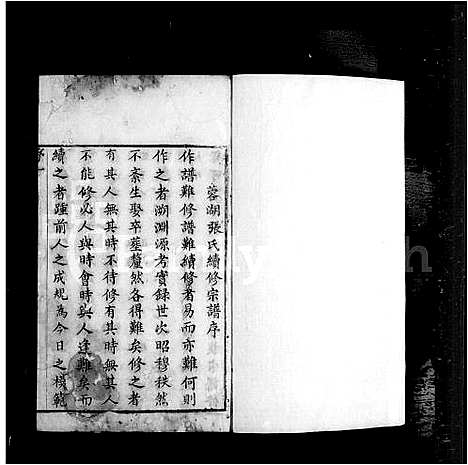 蓉湖張氏續修宗譜序
作譜難修譜難續修者易而亦難何則
作之者溯淵源考實錄世次昭穆秩然
不紊生娶卒塟釐然各得難矣修之者
有其人無其時不待修有其時無其人
不能修必人與時會時與人逢難矣而
續之者踵前人之成規為今日之模範